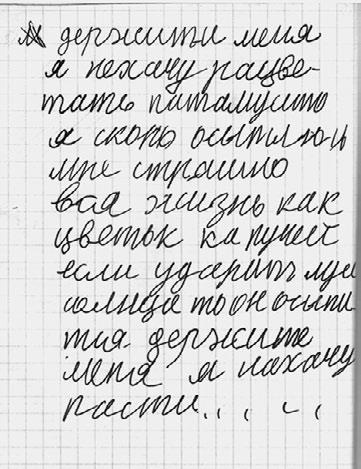 держити меня
я нехачу расцве-
тать патамушто
я скоро осыплюсь
мне страшно
вая жизнь как
цветок ка
если ударить луч
солнца то он осыпи
тся держите
меня я нехачу
расти....